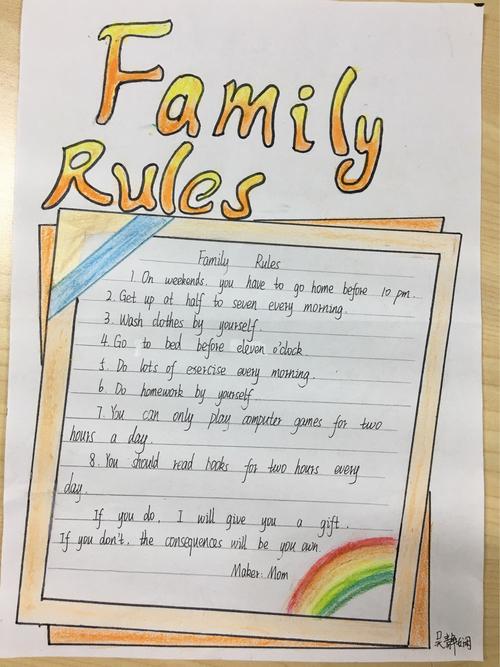 Family
Rules
Family Rules
1. On weekends, you have to go home before 10 pm.
2. Get up at half to seven every morning.
3. Wash clothes by yourself.
4. Go to bed before eleven o'clock.
5. Do lots of exercise every morning.
6. Do homework by yourself.
7. You can only play computer games for two
hours a day.
8. You should read books for two hours every
day.
If you do, I will give you a gift.
If you don't, the consequences will be you own.
Maker: Mom
吴静